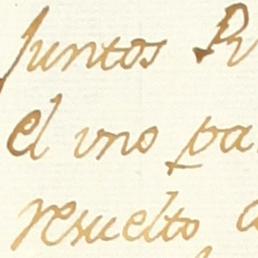 Juntos
el vno pa
resuelto